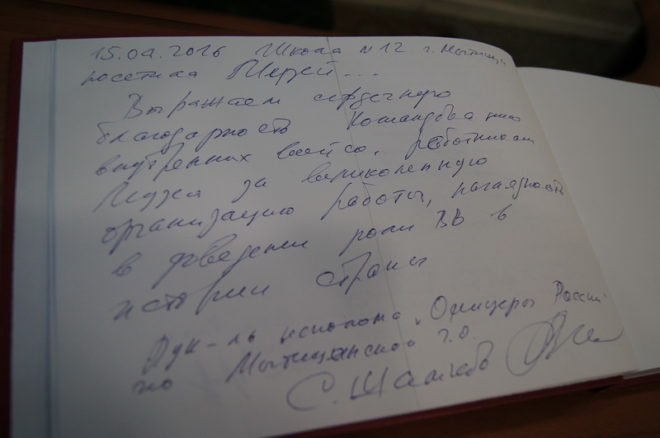 15.04.2016 Школа №12 г. Мытищи
посетила Музей...
Выражаем сердечную
благодарность командованию
внутренних войск, работникам
Музея за великолепную
организацию работы, наглядность
в доведении роли ВВ в
истории страны
Рук-ль исполкома "Офицеры России"
по Мытищинскому г.о.
С.